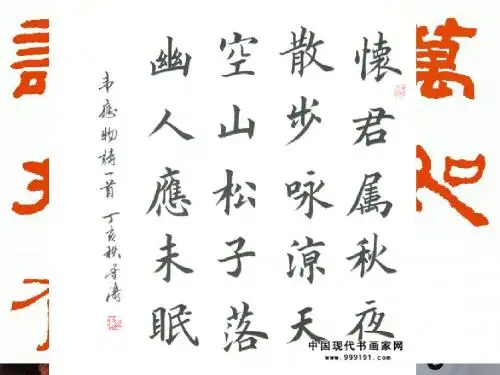 懷君属秋夜
散步咏涼天
空山松子落
幽人應未眠
韦應物詩一首 丁亥秋
中国现代书画家网
www.999191.com